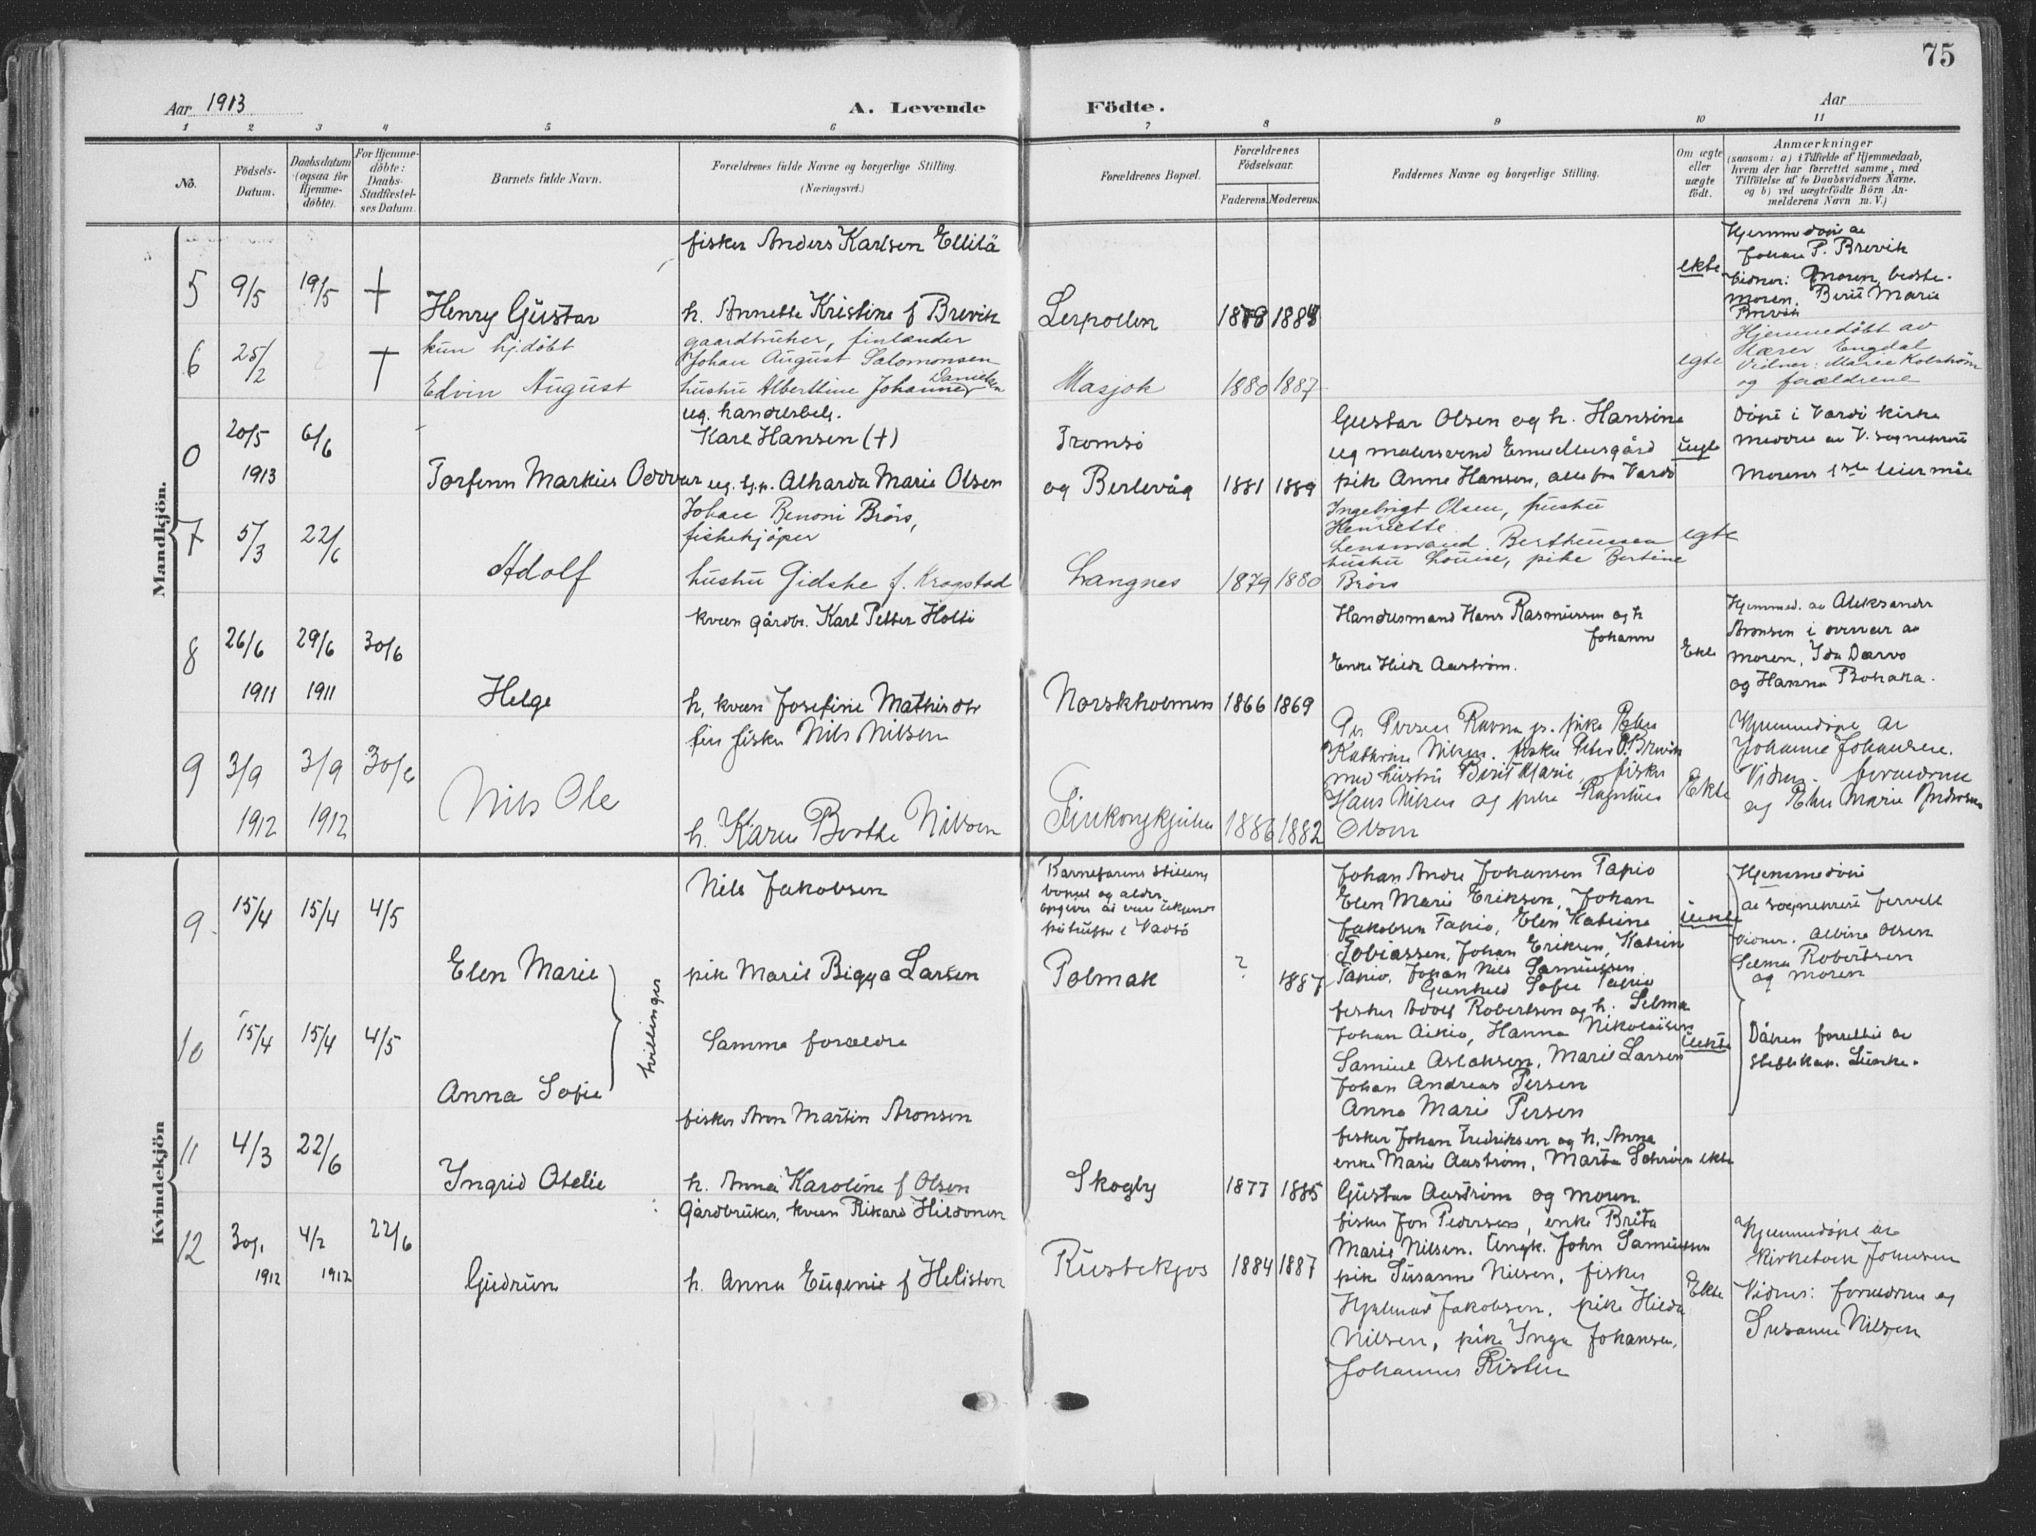 75
Aar 1913
A. Levende Födte.
Aar
1 2 3 4 5 6 7 8 9 10 11
No.
Födsels-Datum.
Daabsdatum (ogsaa for Hjemmedöbte).
For Hjemmedöbte: Daabs-Stadfæstelses Datum.
Barnets fulde Navn.
Forældrenes fulde Navne og borgerlige Stilling.
(Næringsvei.)
Forældrenes Bopæl.
Forældrenes Födselsaar.
Faderens. Moderens.
Faddernes Navne og borgerlige Stilling.
Om ægte eller uægte födt.
Anmærkninger
(saasom: a) i Tilfælde af Hjemmedaab,
hvem der har forrettet samme, med
Tilföielse af to Daabsvidners Navne,
og b) ved uægtefödte Börn An-
melderens Navn m. V.)
Mandkjön.
5 9/5 19/5 +
Henry Gustav
fisker Anders Karlsen Ellilä
h. Annette Kristine f Brevik
Lerpollen
1878 1884
ekte
Hjemmedöpt av
Johan P. Brevik
Vidner: Moren, bedste-
moren, Berit Marie
Brevik
6 25/2 +
kun hjdöbt
Edvin August
gaardbruker, finlænder
Johan August Salomonsen
hustru Albertine Johanne Danielsen
Masjok
1880 1887
egte
Hjemmedöbt av
Kærer Engdal
Vidner: Marie Kolström
og forældrene
0 20/5 1913 6/6
Torfinn Markus Oddvar
ug. handelsbetj.
Karl Hansen (+)
ug. tj.p. Alharda Marie Olsen
Tromsö
og Berlevåg
1881 1889
Gustav Olsen og h. Hansine
ug malersvend Emil Mursgård
pik Anne Hansen, alle fra Vardö
uegte
Döpt i Vardö kirke
meddelt av V. sogneprest
Morens 1ste leiermål
7 5/3 22/6
Adolf
Johan Benoni Brörs,
fiskekjöper
hustru Gidske f. Krogstad
Langnes
1879 1880
Ingebrigt Olsen, hustru
Henriette
Lensmand Bertheussen
hustru Louise, pike Bertine
Brörs
egte
8 26/6 1911 29/6 1911 30/6
Helge
kvæn gårdbr. Karl Petter Holti
h, kvæn Josefine Mathisdtr
Norskholmen
1866 1869
Handelsmand Hans Rasmussen og h
Johanne
Enke Hilda Aaström.
Ekte
Hjemmed. av Aleksander
Aronsen i overvær av
moren, Ida Dærvo
og Hanna Pohaka.
9 3/9 1912 3/9 1912 30/6
Nils Ole
fin fisker Nils Nilsen
h. Karen Berthe Nilsen
Finkongkjeilen
1886 1882
Per Persen Ravna jr. pike Ellen
Kathrine Nilsen, fisker Peter P. Brevik
med hustru Berit Marie, fisker
Hans Nilsen og pike
Olsen
Ekte
Hjemmedöpt av
Johanne Johansen.
Vidner. forældrene
og Ellen Marie Andersen
Kvindekjön
9 15/4 15/4 4/5
Elen Marie
Nils Jakobsen
pik Marit Bigga Larsen
Barnefarens stilling
bopæl og alder
opgives at være ukjendt
Polmak
? 1887
Johan Andre Johansen Tapio
Elen Marie Eriksen, Johan
Jakobsen Tapio, Elen Katrine
Tobiassen, Johan Eriksen, Katrin
Tapio, Johan Nils Samuelsen
Gunhild Sofie Tapio
uekte
Hjemmedöpt
av sogneprest Fervell
Vidner. Albine Olsen
Selma Robertsen
og moren
tvillinger
10 15/4 15/4 4/5
Anna Sofie
Samme forældre
fisker Adolf Robertsen og h. Selma
Johan Aikio, Hanna Nikolaisen
Samuel Aslaksen, Marit Larsen
Johan Andreas Persen
Anna Marie Persen
uekte
Dåpen forrettet av
stiftskap. Lunke.
11 4/3 22/6
Ingrid Otelie
fisker Aron Martin Aronsen
h. Anna Karoline f Olsen
Skogby
1877 1885
fisker Johan Fredriksen og h. Anna
enke Marie Aaström, Marta Schröer
Gustav Aaström og moren.
ekte
12 30/1 1912 4/2 1912 22/6
Gudrun
Gårdbruker, kvæn Rikard Hildonen
h. Anna Eugenie f Helisten
Rustefjos
1884 1887
fisker Jon Pedersen, enke Brita
Marie Nilsen. Ungk. John Samuelsen
pik Susanne Nilsen, fisker
Hjalmar Jakobsen, pike Hilda
Nilsen, pike Inga Johansen,
Johannes Risten
Ekte
Hjemmedöpt av
kirketolk Johnsen
Vidner: forældrene og
Susanne Nilsen